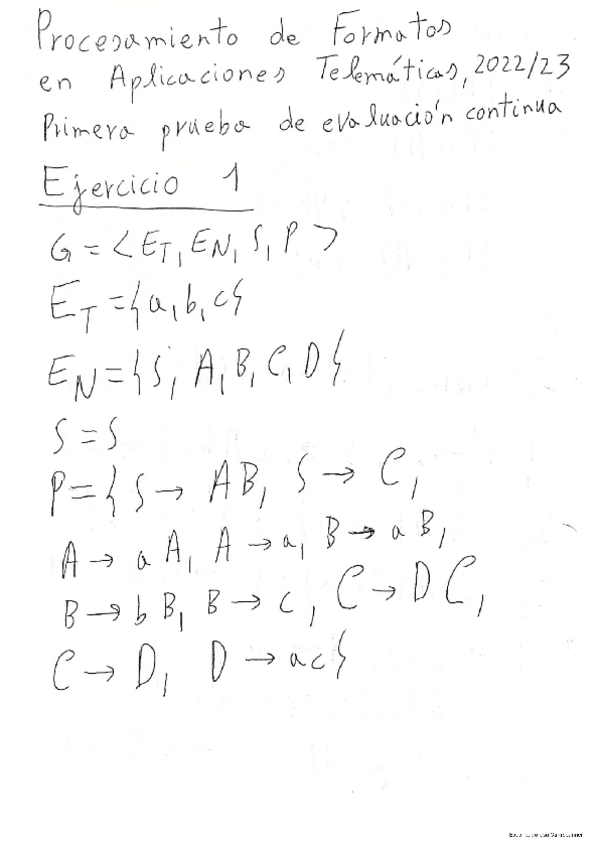 Procesamiento de Formatos
en Aplicaciones Telemáticas, 2022/23
Primera prueba de evaluación continua
Ejercicio 1
G = < ET, EN, S, P >
ET = {a, b, c}
EN = {S, A, B, C, D}
S = S
P = { S → AB, S → C,
A → a A, A → a, B → a B,
B → b B, B → c, C → D C,
C → D, D → ac}